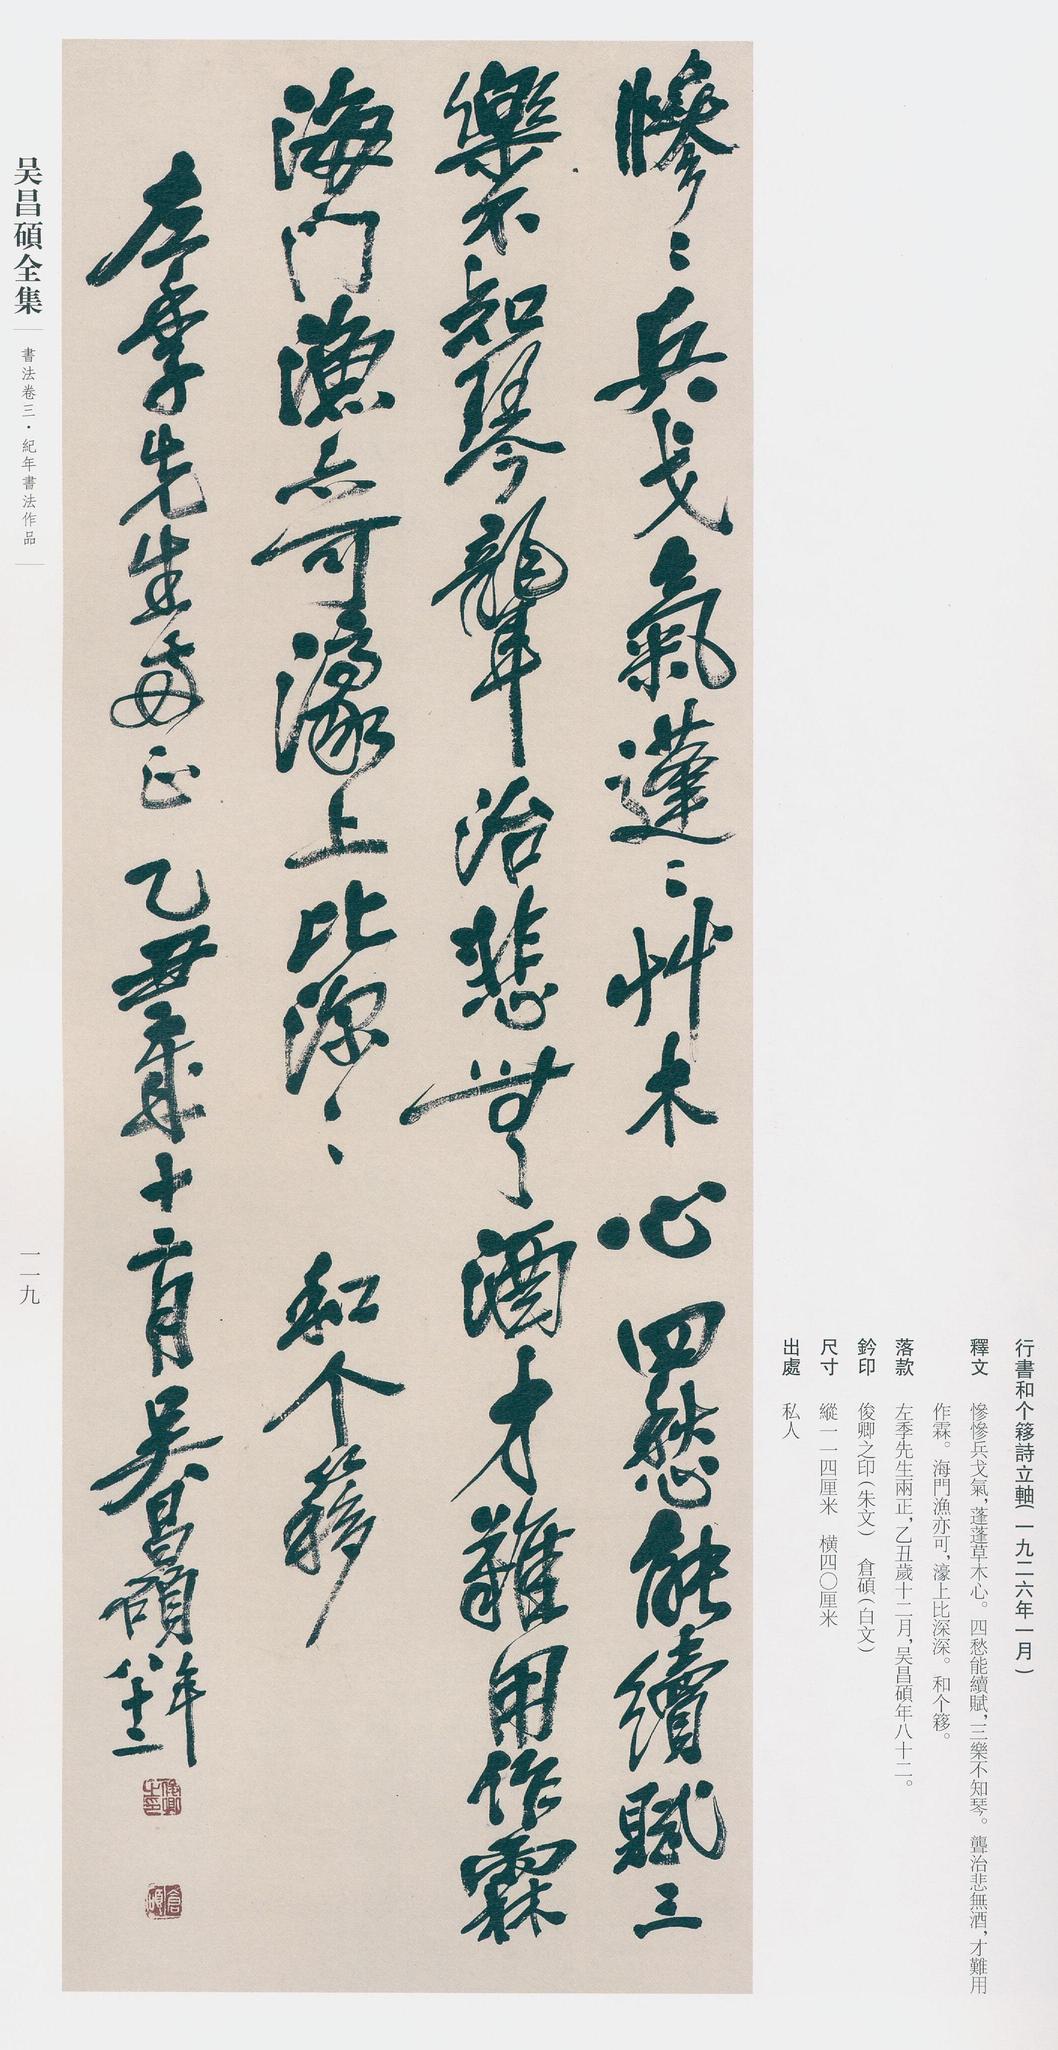 慘〻兵戈氣蓬〻艸木心四愁能續賦三
樂不知琴聾治悲無酒才難用作霖
海門漁亦可濠上比深〻 和个簃
左季先生兩正 乙丑歲十二月吳昌碩年八十二
俊卿之印
倉碩
行書和个簃詩立軸(一九二六年一月)
釋文 慘慘兵戈氣,蓬蓬草木心。四愁能續賦,三樂不知琴。聾治悲無酒,才難用
作霖。海門漁亦可,濠上比深深。和个簃。
落款 左季先生兩正,乙丑歲十二月,吴昌碩年八十二。
鈐印 俊卿之印(朱文) 倉碩(白文)
尺寸 縱一一四厘米 橫四〇厘米
出處 私人
吴昌碩全集
書法卷三·紀年書法作品
一一九